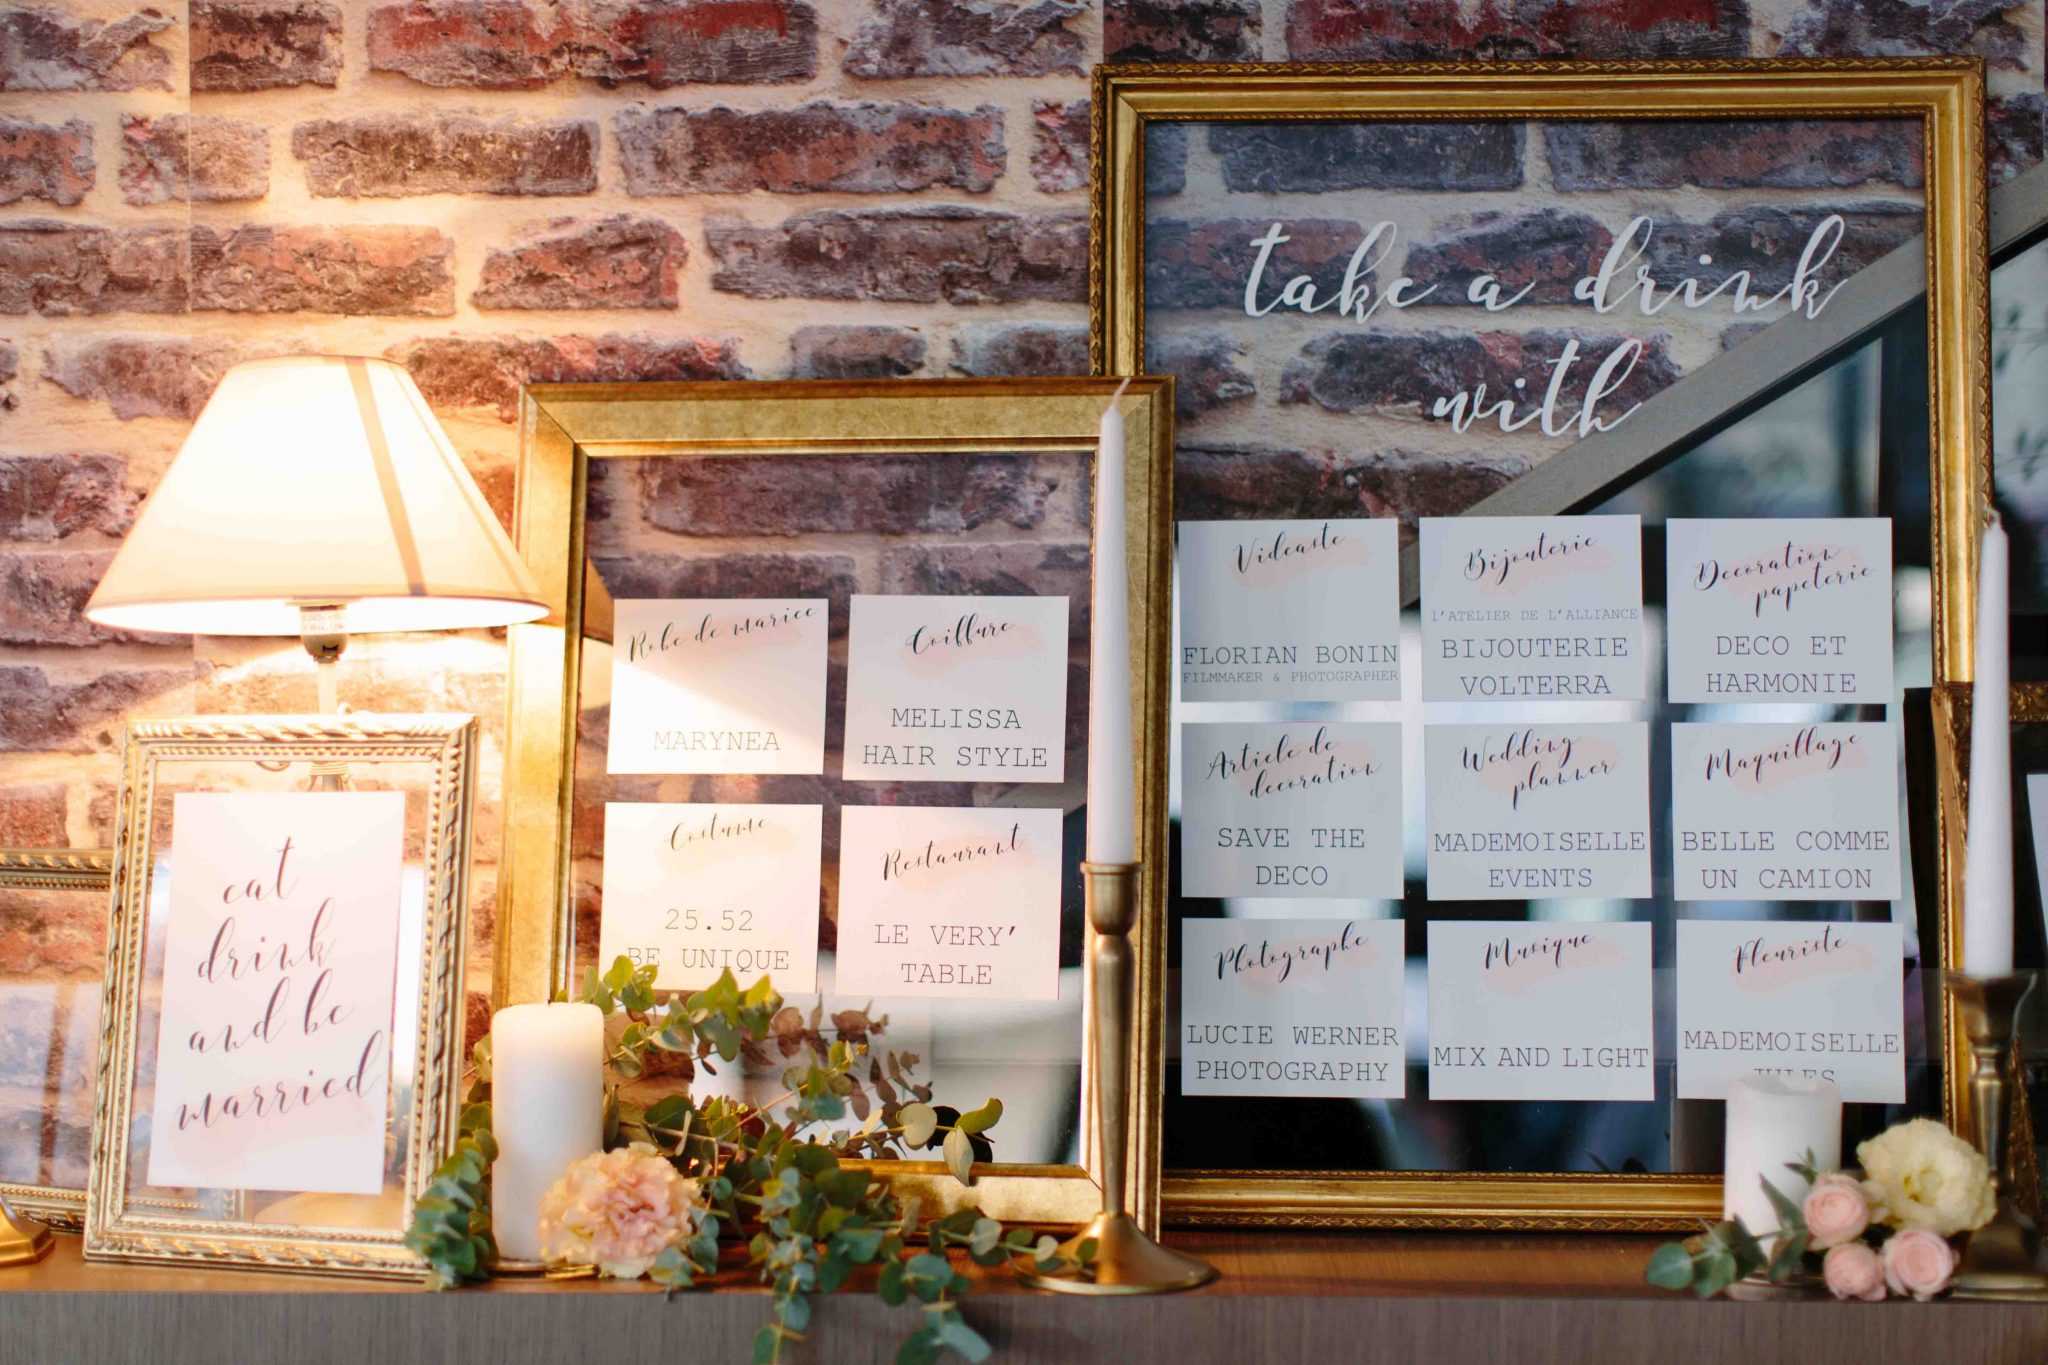 eat
drink
and be
married
Robe de mariee
MARYNEA
Coiffure
MELISSA
HAIR STYLE
Costume
25.52
BE UNIQUE
Restaurant
LE VERY'
TABLE
take a drink
with
Videaste
FLORIAN BONIN
FILMMAKER & PHOTOGRAPHER
Bijouterie
l'ATELIER DE L'ALLIANCE
BIJOUTERIE
VOLTERRA
Decoration
papeterie
DECO ET
HARMONIE
Article de
decoration
SAVE THE
DECO
Wedding
planner
MADEMOISELLE
EVENTS
Maquillage
BELLE COMME
UN CAMION
Photographe
LUCIE WERNER
PHOTOGRAPHY
Musique
MIX AND LIGHT
Fleuriste
MADEMOISELLE
JULES